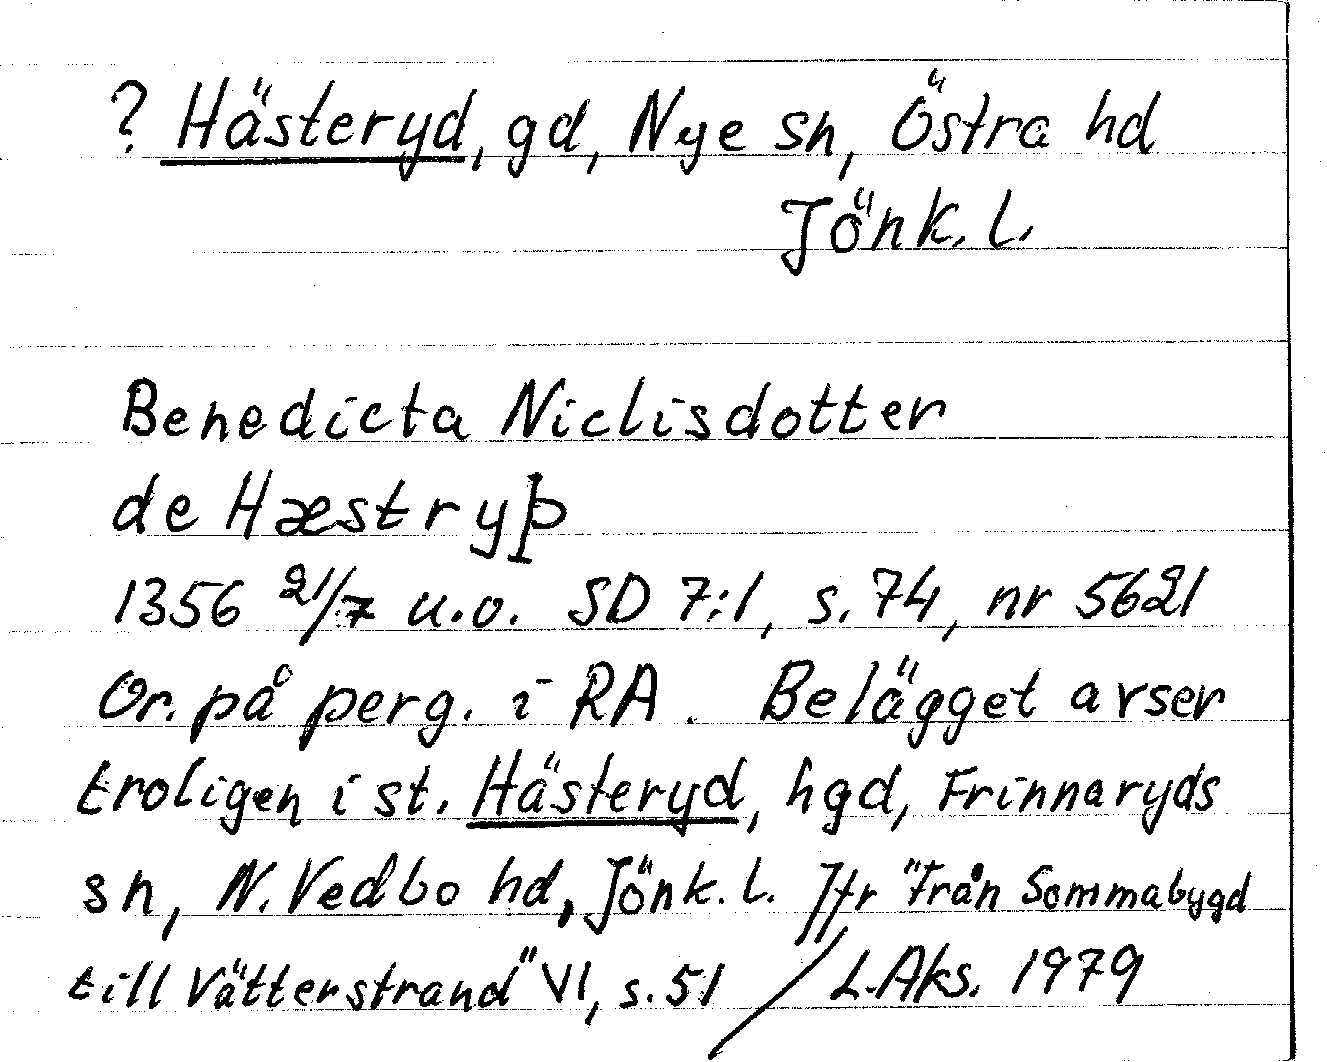 ? Hästeryd, gd, Nye sn, Östra hd
Jönk. l.
Benedicta Niclisdotter
de Hæstryþ
1356 21/7 u.o. SD 7:1, s. 74, nr 5621
Or. på perg. i RA. Belägget avser
troligen i st. Hästeryd, hgd, Frinnaryds
sn, N. Vedbo hd, Jönk. l. Jfr "Från Sommabygd
till Vätterstrand" VI, s. 51 / L.Aks. 1979